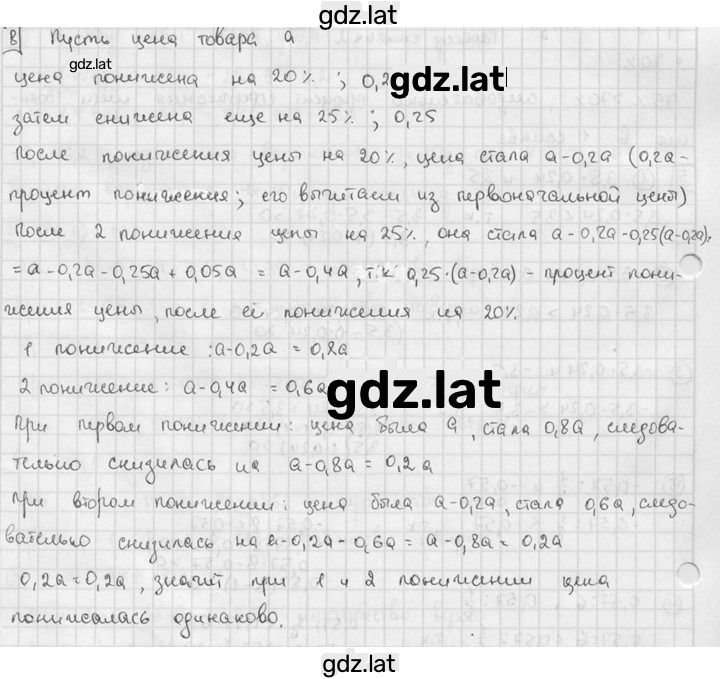 gdz.lat
В) Пусть цена товара a
gdz.lat
цена понижена на 20% ; 0,2
gdz.lat
затем снижена еще на 25% ; 0,25
После понижения цены на 20%, цена стала a-0,2a (0,2a-
процент понижения; его вычитаем из первоначальной цены)
После 2 понижения цены на 25%, она стала a-0,2a-0,25(a-0,2a)=
=a-0,2a-0,25a+0,05a = a-0,4a, т.к 0,25·(a-0,2a) - процент пони-
жения цены, после её понижения на 20%.
1 понижение: a-0,2a = 0,8a
2 понижение: a-0,4a = 0,6a
gdz.lat
При первом понижении: цена была a, стала 0,8a, следова-
тельно снизилась на a-0,8a = 0,2a
При втором понижении: цена была a-0,2a, стала 0,6a, следо-
вательно снизилась на a-0,2a-0,6a = a-0,8a = 0,2a
0,2a=0,2a, значит при 1 и 2 понижении цена
понижалась одинаково.
gdz.lat